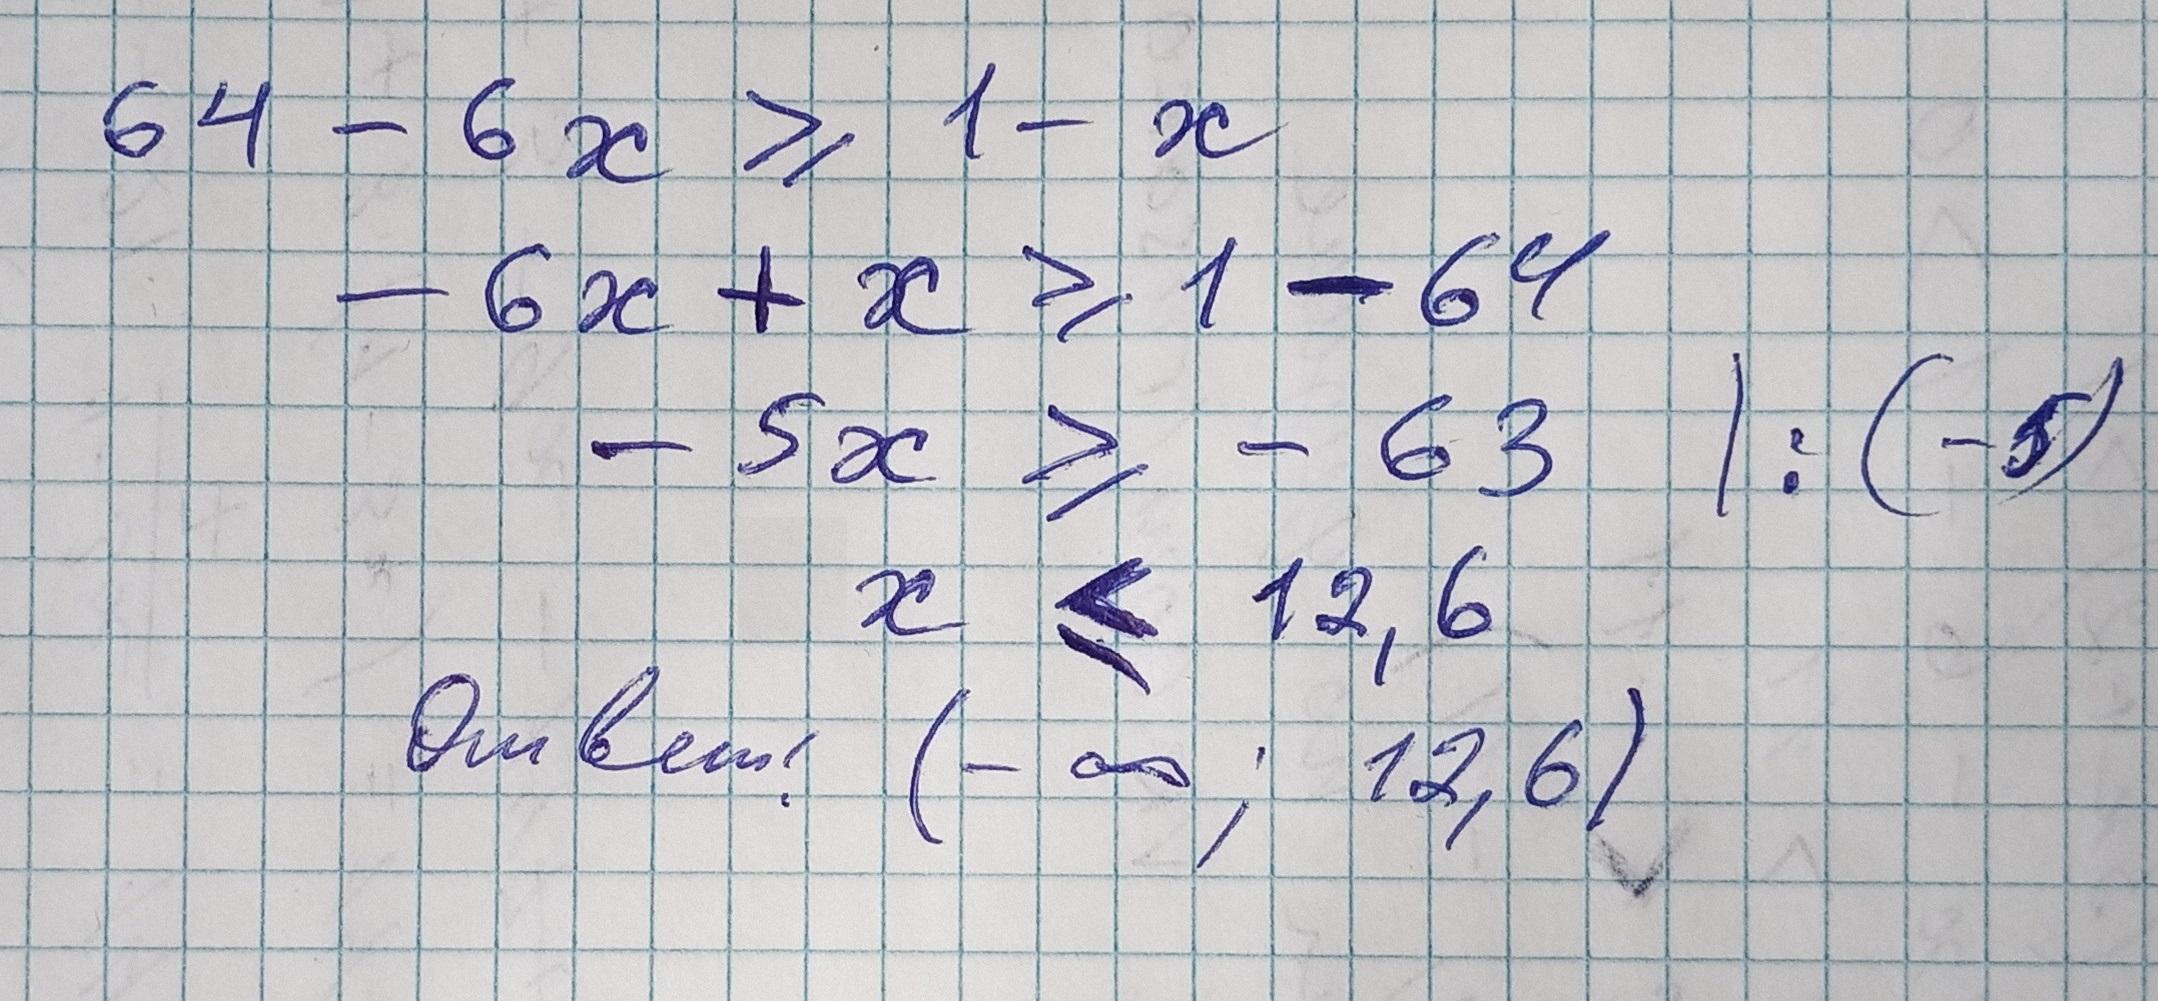 64 - 6x ⩾ 1 - x
- 6x + x ⩾ 1 - 64
- 5x ⩾ - 63 | : (-5)
x ⩽ 12,6
Ответ: (- ∞; 12,6)